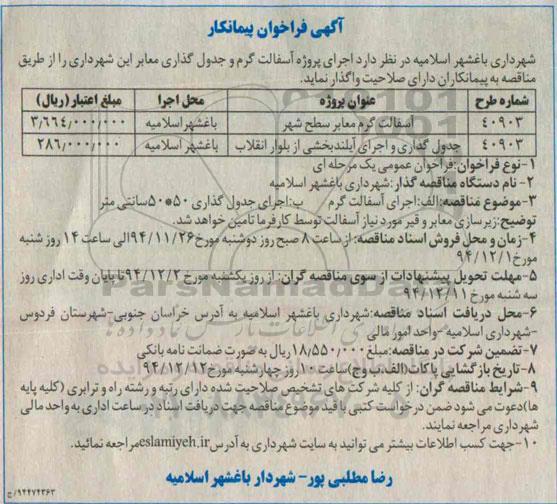 آگهی فراخوان پیمانکار
شهرداری باغشهر اسلامیه در نظر دارد اجرای پروژه آسفالت گرم و جدول گذاری معابر این شهرداری را از طریق
مناقصه به پیمانکاران دارای صلاحیت واگذار نماید.
شماره طرح عنوان پروژه محل اجرا مبلغ اعتبار (ریال)
۴۰۹۰۳ آسفالت گرم معابر سطح شهر باغشهر اسلامیه ۳٫۶۶۴٫۰۰۰٫۰۰۰
۴۰۹۰۳ جدول گذاری و اجرای آیلند بخشی از بلوار انقلاب باغشهر اسلامیه ۲۸۶٫۰۰۰٫۰۰۰
۱-نوع فراخوان: فراخوان عمومی یک مرحله ای
۲- نام دستگاه مناقصه گذار: شهرداری باغشهر اسلامیه
۳-موضوع مناقصه: الف: اجرای آسفالت گرم ب: اجرای جدول گذاری ۵۰*۵۰ سانتی متر
توضیح: زیرسازی معابر و قیر مورد نیاز آسفالت توسط کارفرما تامین خواهد شد.
۴-زمان و محل فروش اسناد مناقصه: از ساعت ۸ صبح روز دوشنبه مورخ ۹۴/۱۱/۲۶ الی ساعت ۱۴ روز شنبه
مورخ ۹۴/۱۲/۱
۵-مهلت تحویل پیشنهادات از سوی مناقصه گران: از روز یکشنبه مورخ ۹۴/۱۲/۲ تا پایان وقت اداری روز
سه شنبه مورخ ۹۴/۱۲/۱۱
۶-محل دریافت اسناد مناقصه: شهرداری باغشهر اسلامیه به آدرس خراسان جنوبی-شهرستان فردوس
-شهرداری اسلامیه -واحد امور مالی
۷-تضمین شرکت در مناقصه: مبلغ ۱۸٫۵۵۰٫۰۰۰ ریال به صورت ضمانت نامه بانکی
۸-تاریخ بازگشایی پاکات (الف، ب و ج) ساعت ۱۰ روز چهارشنبه مورخ ۹۴/۱۲/۱۲
۹-شرایط مناقصه گران: از کلیه شرکت های تشخیص صلاحیت شده دارای رتبه و رشته راه و ترابری (کلیه پایه
ها) دعوت می شود ضمن درخواست کتبی با قید موضوع مناقصه جهت دریافت اسناد در ساعت اداری به واحد مالی
شهرداری مراجعه نمایند.
۱۰-جهت کسب اطلاعات بیشتر می توانید به سایت شهرداری به آدرس eslamiyeh.ir مراجعه نمائید.
رضا مطلبی پور- شهردار باغشهر اسلامیه
۹۴۴۷۴۳۶۳/ج
ParsNamadData